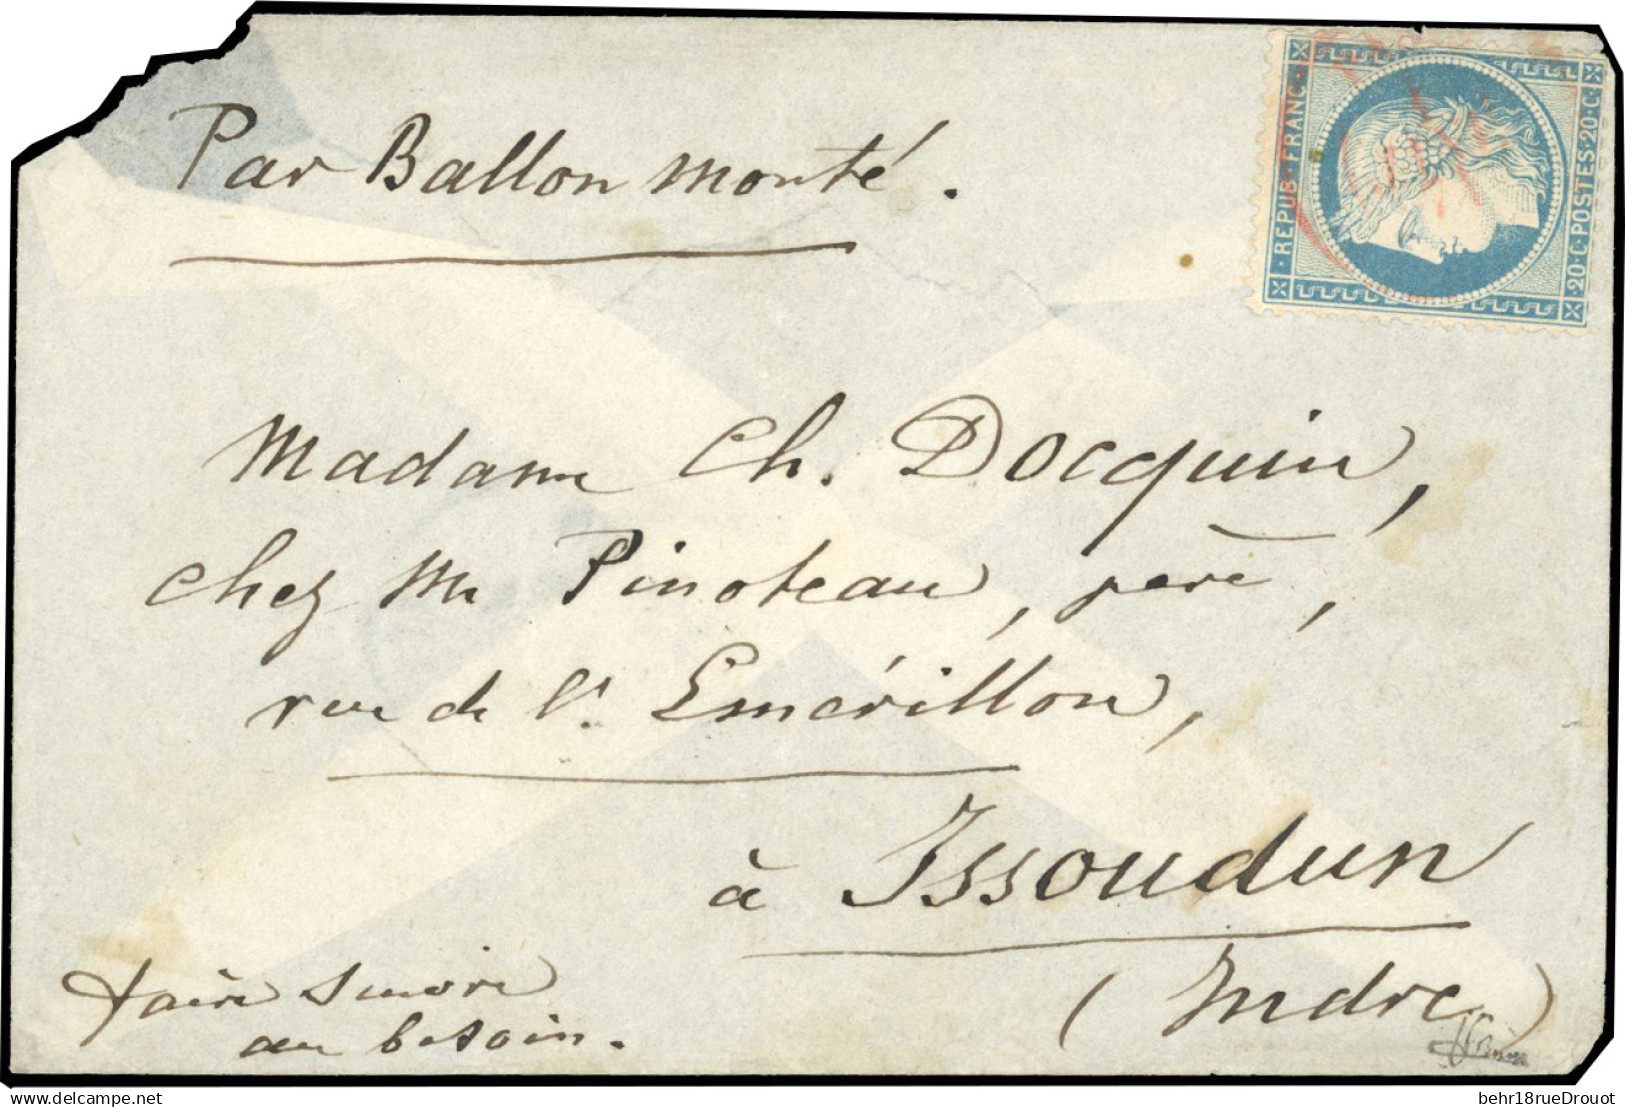 Par Ballon monté.
REPUB·FRANC·
20·C·POSTES·20·C·
Madame Ch. Docquin,
chez Mr Pinoteau, père,
rue de l'Emérillon,
à Issoudun
(Indre)
faire suivre
au besoin.
behr18rueDrouot